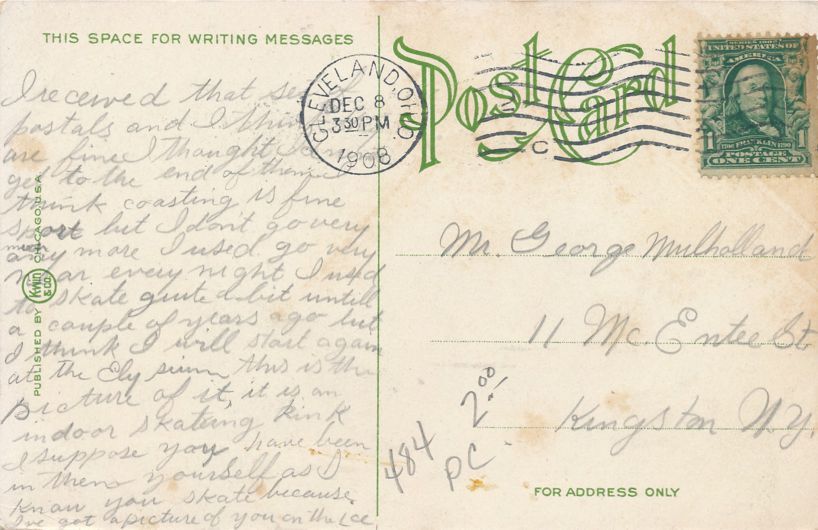 THIS SPACE FOR WRITING MESSAGES
Post Card
CLEVELAND, OHIO
DEC 8
3 30 PM
1908
C
SERIES 1902
UNITED STATES OF
AMERICA
1
1
1706 FRANKLIN 1790
POSTAGE
ONE CENT
I received that set of
postals and I think
are fine I thought I
get to the end of them I
think coasting is fine
sport but I dont go very
much
any more I used go very
near every night I used
to skate quite abit untill
a couple of years ago but
I think I will start again
at the Elysium this is the
picture of it, it is an
indoor skateing rink
I suppose you have been
in them yourself as I
know you skate because
I've got a picture of you on the Ice
PUBLISHED BY KWIN & CO. CHICAGO, U.S.A.
Mr. George Mulholland
11 Mc. Entee St
Kingston N.Y.
484
PC.
2.00
FOR ADDRESS ONLY